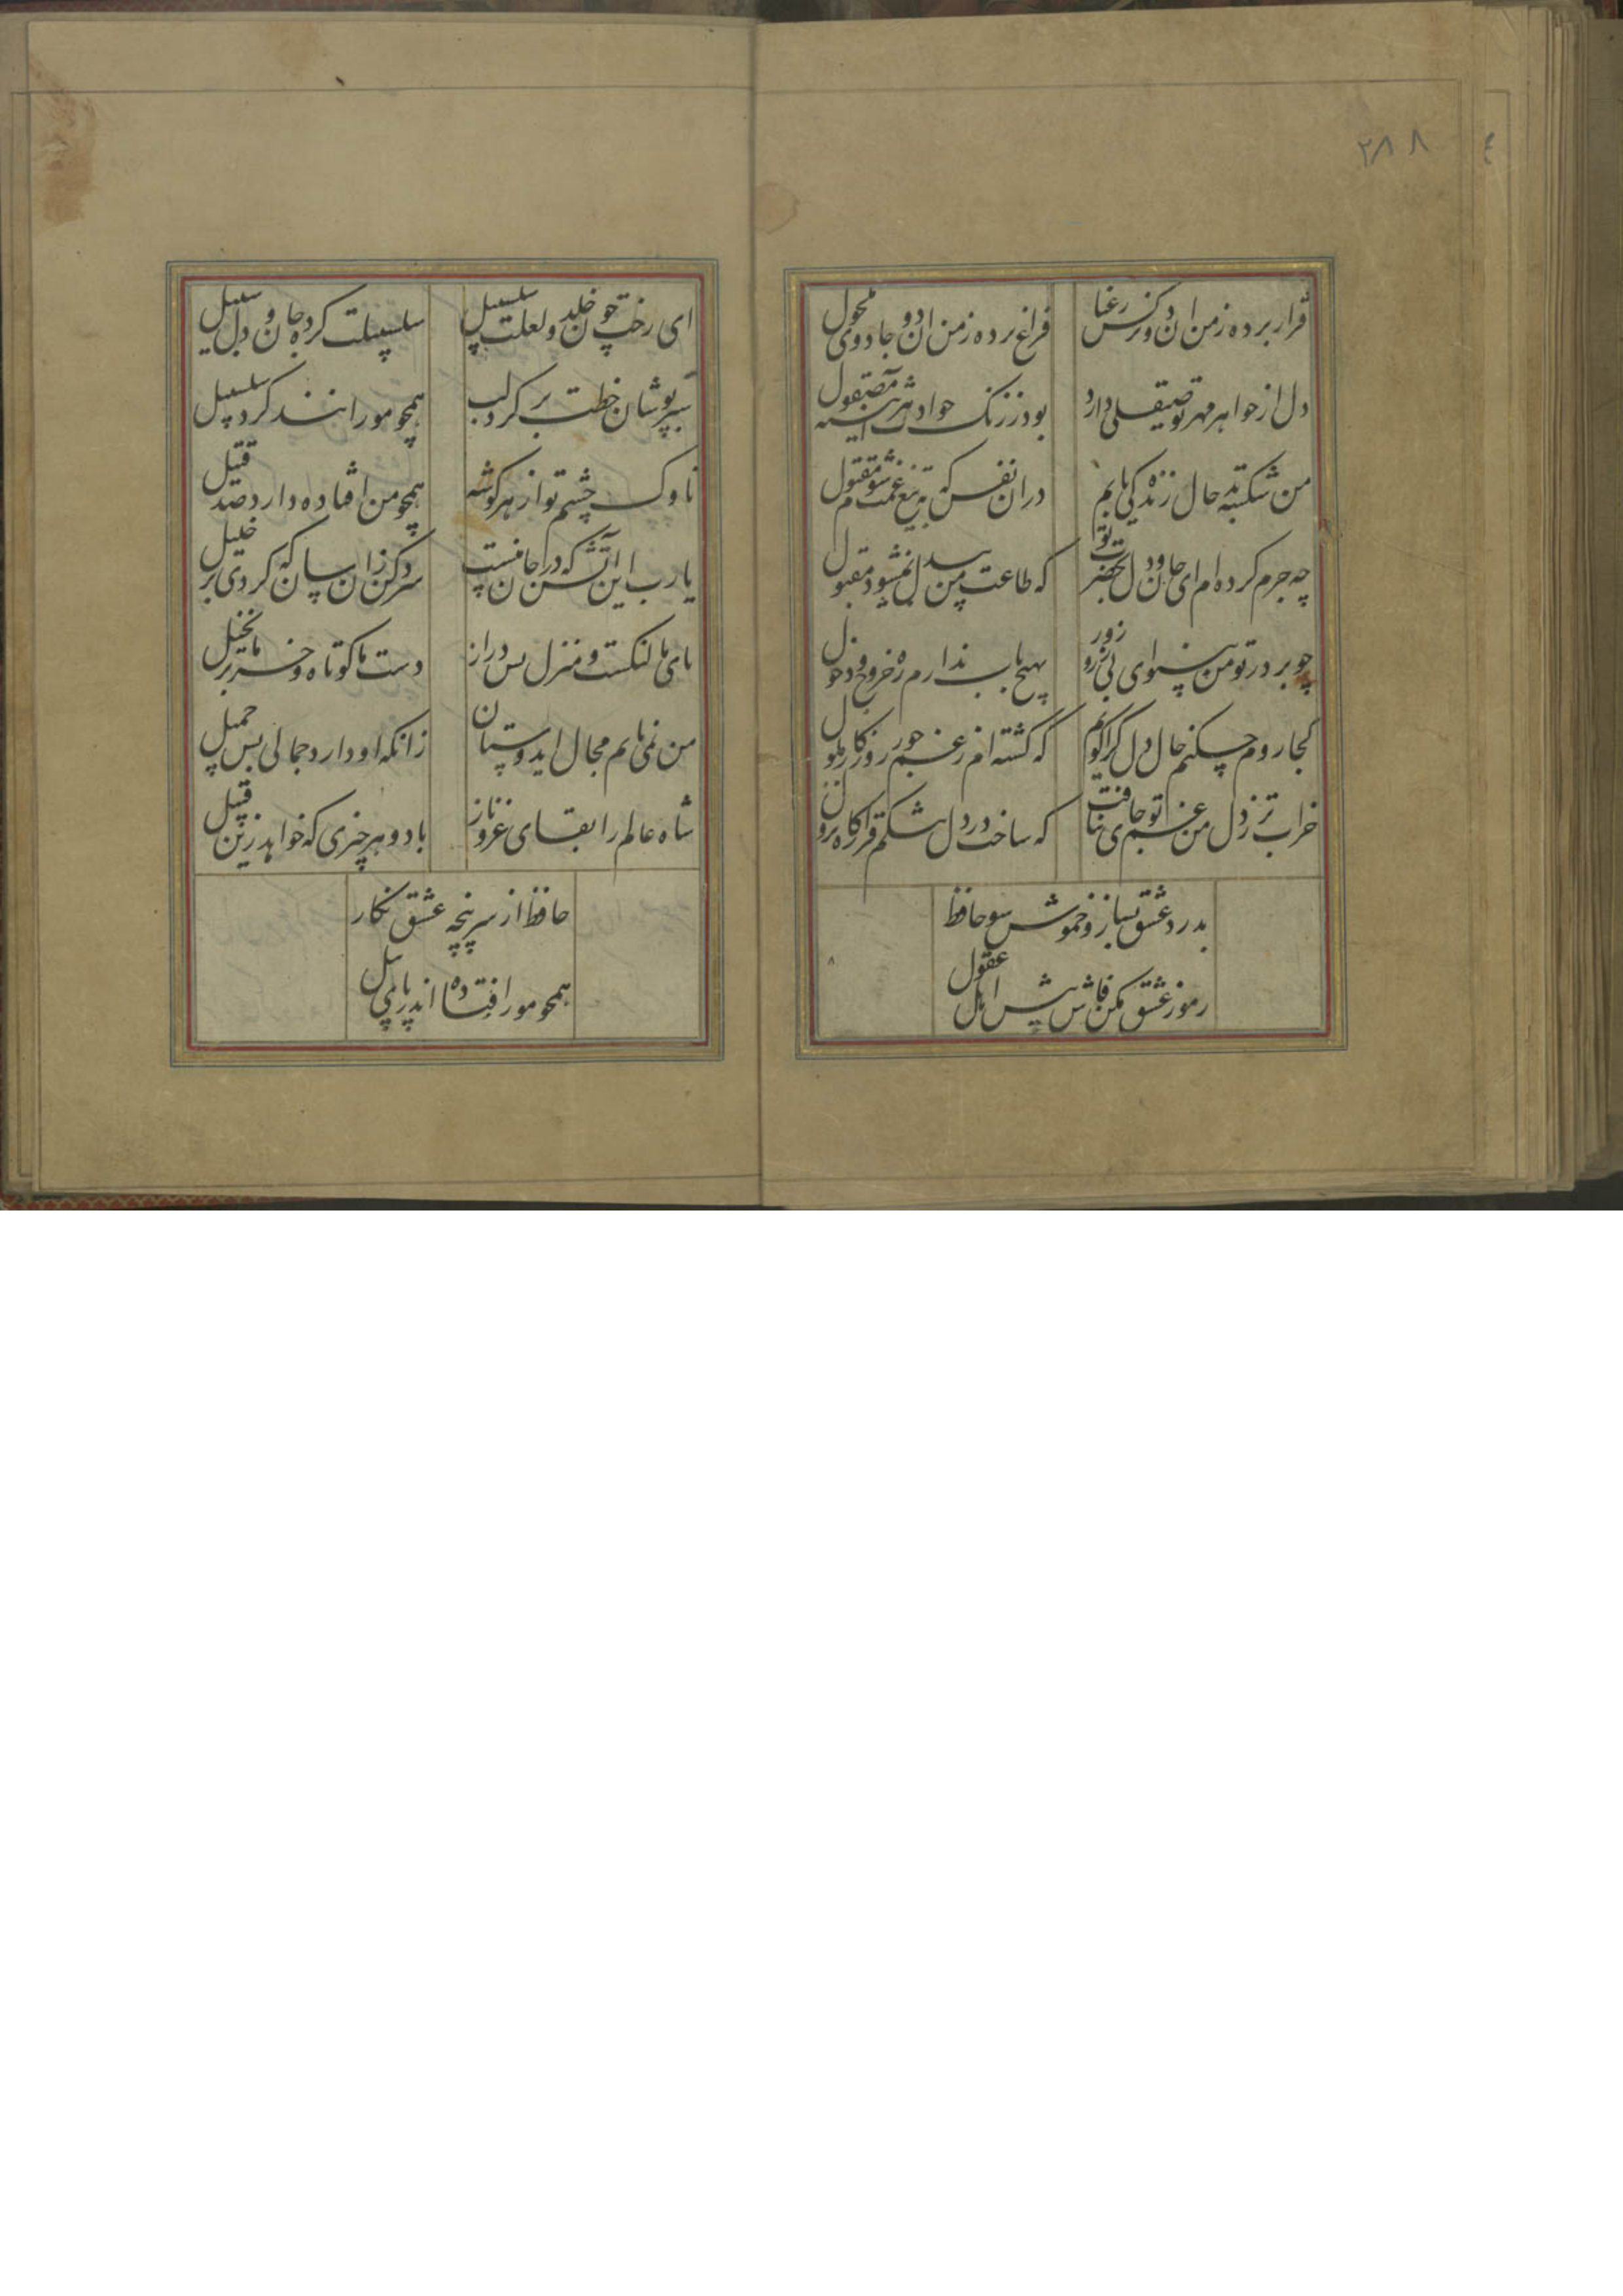 ۲۸۸
قرار برده ز من ان دو نرکس رعنا
فراغ برده ز من ان دو جادوی مکحول
دل از جواهر مهرت چو صیقلی دارد
بود ز زنک حوادث هر اینه مصقول
من شکسته بدحال زندکی یابم
در ان نفس که به تیغ غمت شوم مقتول
چه جرم کرده ام ای جان و دل بحضرت تو
که طاعت من بیدل نمیشود مقبول
چو بر در تو من بینوای بی زر و زور
بهیچ باب ندارم ره خروج و دخول
کجا روم چکنم حال دل کرا کویم
که کشته ام ز غم جور روزکار ملول
خراب تر ز دل من غم تو جای نیافت
که ساخت در دل تنکم قرارکاه نزول
بدرد عشق بساز و خموش شو حافظ
رموز عشق مکن فاش پیش اهل عقول
ای رخت چون خلد و لعلت سلسبیل
سلسبیلت کرده جان و دل سبیل
سبزپوشان خطت بر کرد لب
همچو مورانند کرد سلسبیل
ناوک چشم تو از هر کوشه
همچو من افتاده دارد صد قتیل
یا رب این اتش که در جان منست
سرد کن زان سان که کردی بر خلیل
پای ما لنکست و منزل بس دراز
دست ما کوتاه و خرما بر نخیل
من نمی یابم مجال ای دوستان
زانکه او دارد جمالی بس جمیل
شاه عالم را بقای عز و ناز
باد و هر چیزی که خواهد زین قبیل
حافظ از سرپنجه عشق نکار
همچو مور افتاده اندر پای پیل